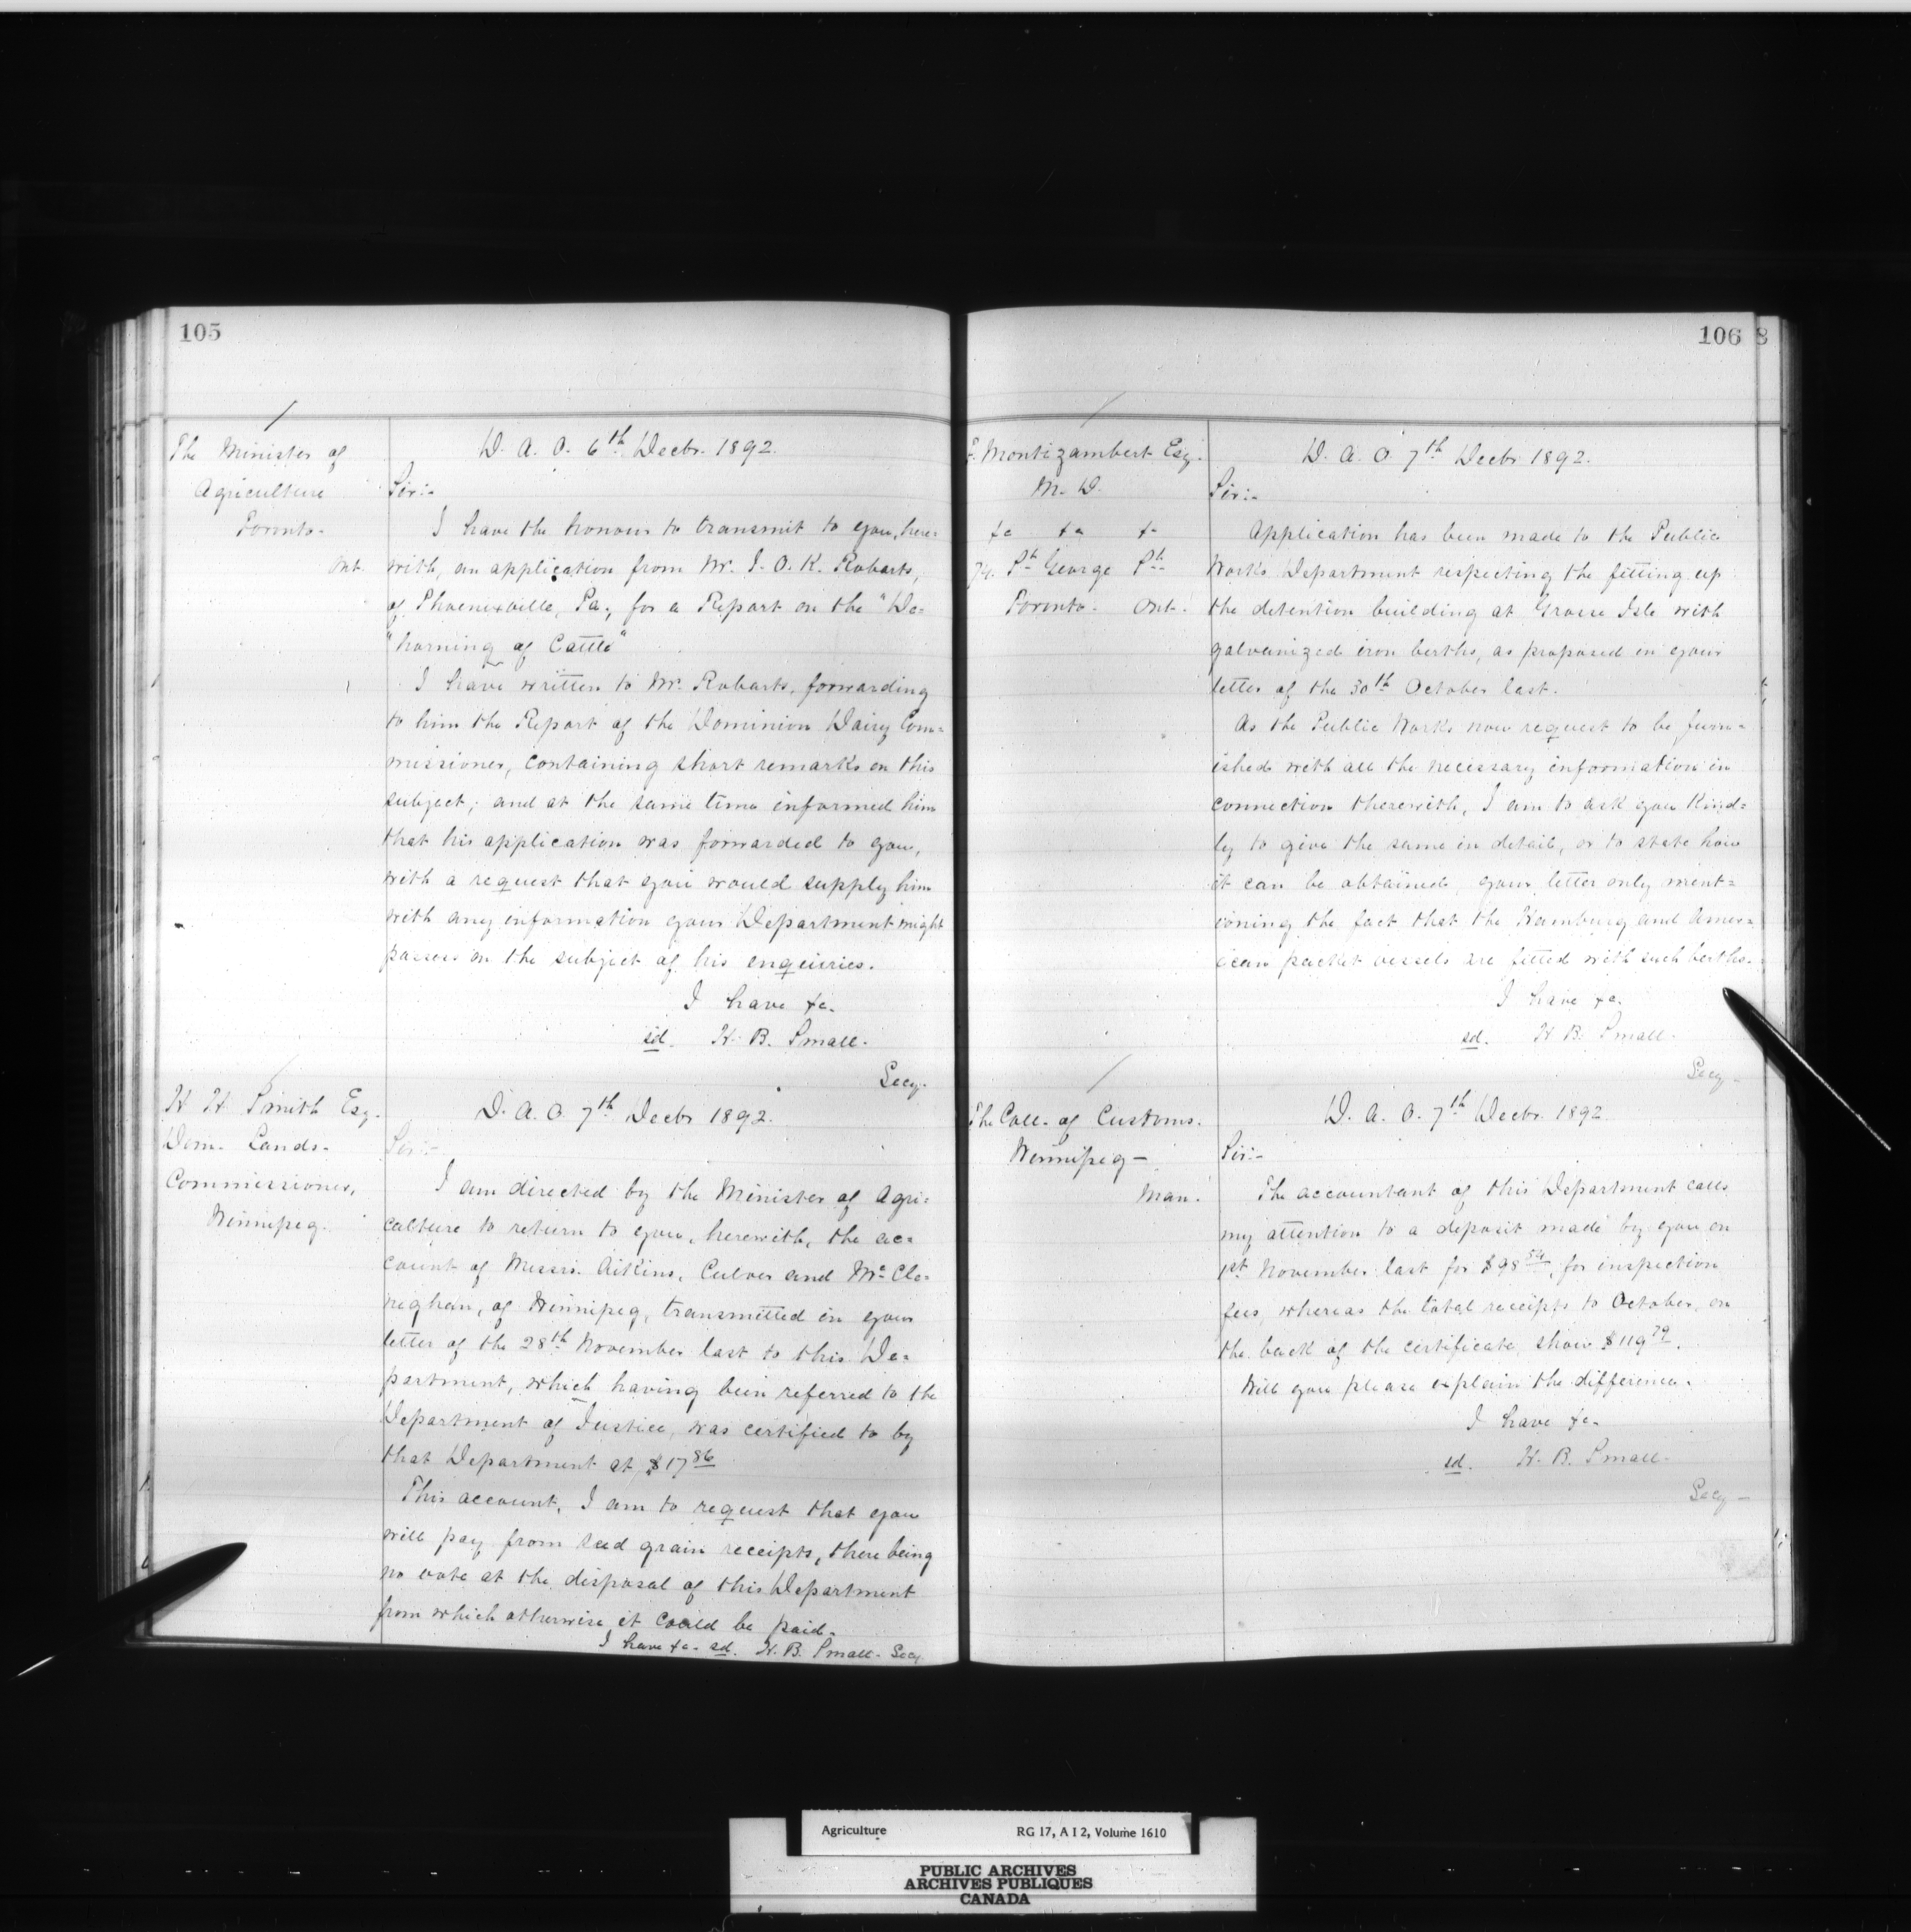 105
The Minister of
Agriculture
Toronto-
Ont.
D. A. O. 6th Decbr. 1892.
Sir:-
I have the honour to transmit to you, here=
with, an application from Mr. I. O. K. Robarts,
of Phoenixville, Pa; for a Report on the "De=
"horning of Cattle"
I have written to Mr. Robarts, forwarding
to him the Report of the Dominion Dairy Com=
missioner, containing short remarks on this
subject; and at the same time informed him
that his application was forwarded to you,
with a request that you would supply him
with any information your Department might
possess on the subject of his enquiries.
I have &c.
sd. H. B. Small.
Secy.
H H Smith Esq.
Dom. Lands-
Commissioner,
Winnipeg.
D. A. O. 7th Decbr 1892.
Sir:-
I am directed by the Minister of Agri=
culture to return to you, herewith, the ac=
count of Messrs. Aikins, Culver and McCle=
neghan, of Winnipeg, transmitted in your
letter of the 28th November last to this De=
partment, which having been referred to the
Department of Justice, was certified to by
that Department at $17 86
This account, I am to request that you
will pay from seed grain receipts, there being
no vote at the disposal of this Department
from which otherwise it could be paid.
I have &c- sd. H. B. Small- Secy
106
8
F. Montizambert Esq.
M. D.
&c &c &c
74. St George St.
Toronto- Ont.
D. A. O 7th Decbr 1892.
Sir:-
Application has been made to the Public
Works Department respecting the fitting up
the detention building at Grosse Isle with
galvanized iron berths, as proposed in your
letter of the 30th October last.
As the Public Works now request to be furn=
ished with all the necessary information in
connection therewith, I am to ask you kind=
ly to give the same in detail, or to state how
it can be obtained, your letter only ment=
ioning the fact that the Hamburg and Amer=
ican packet vessels are fitted with such berths.
I have &c.
sd. H B. Small.
Secy-
The Coll. of Customs.
Winnipeg-
Man.
D. A. O. 7th Decbr. 1892
Sir:-
The accountant of this Department calls
my attention to a deposit made by you on
1st November last for $98 54, for inspection
fees, whereas the total receipts to October, on
the back of the certificate, show $119 79.
Will you please explain the difference.
I have &c-
sd. H. B. Small-
Secy-
Agriculture RG 17, A I 2, Volume 1610
PUBLIC ARCHIVES
ARCHIVES PUBLIQUES
CANADA